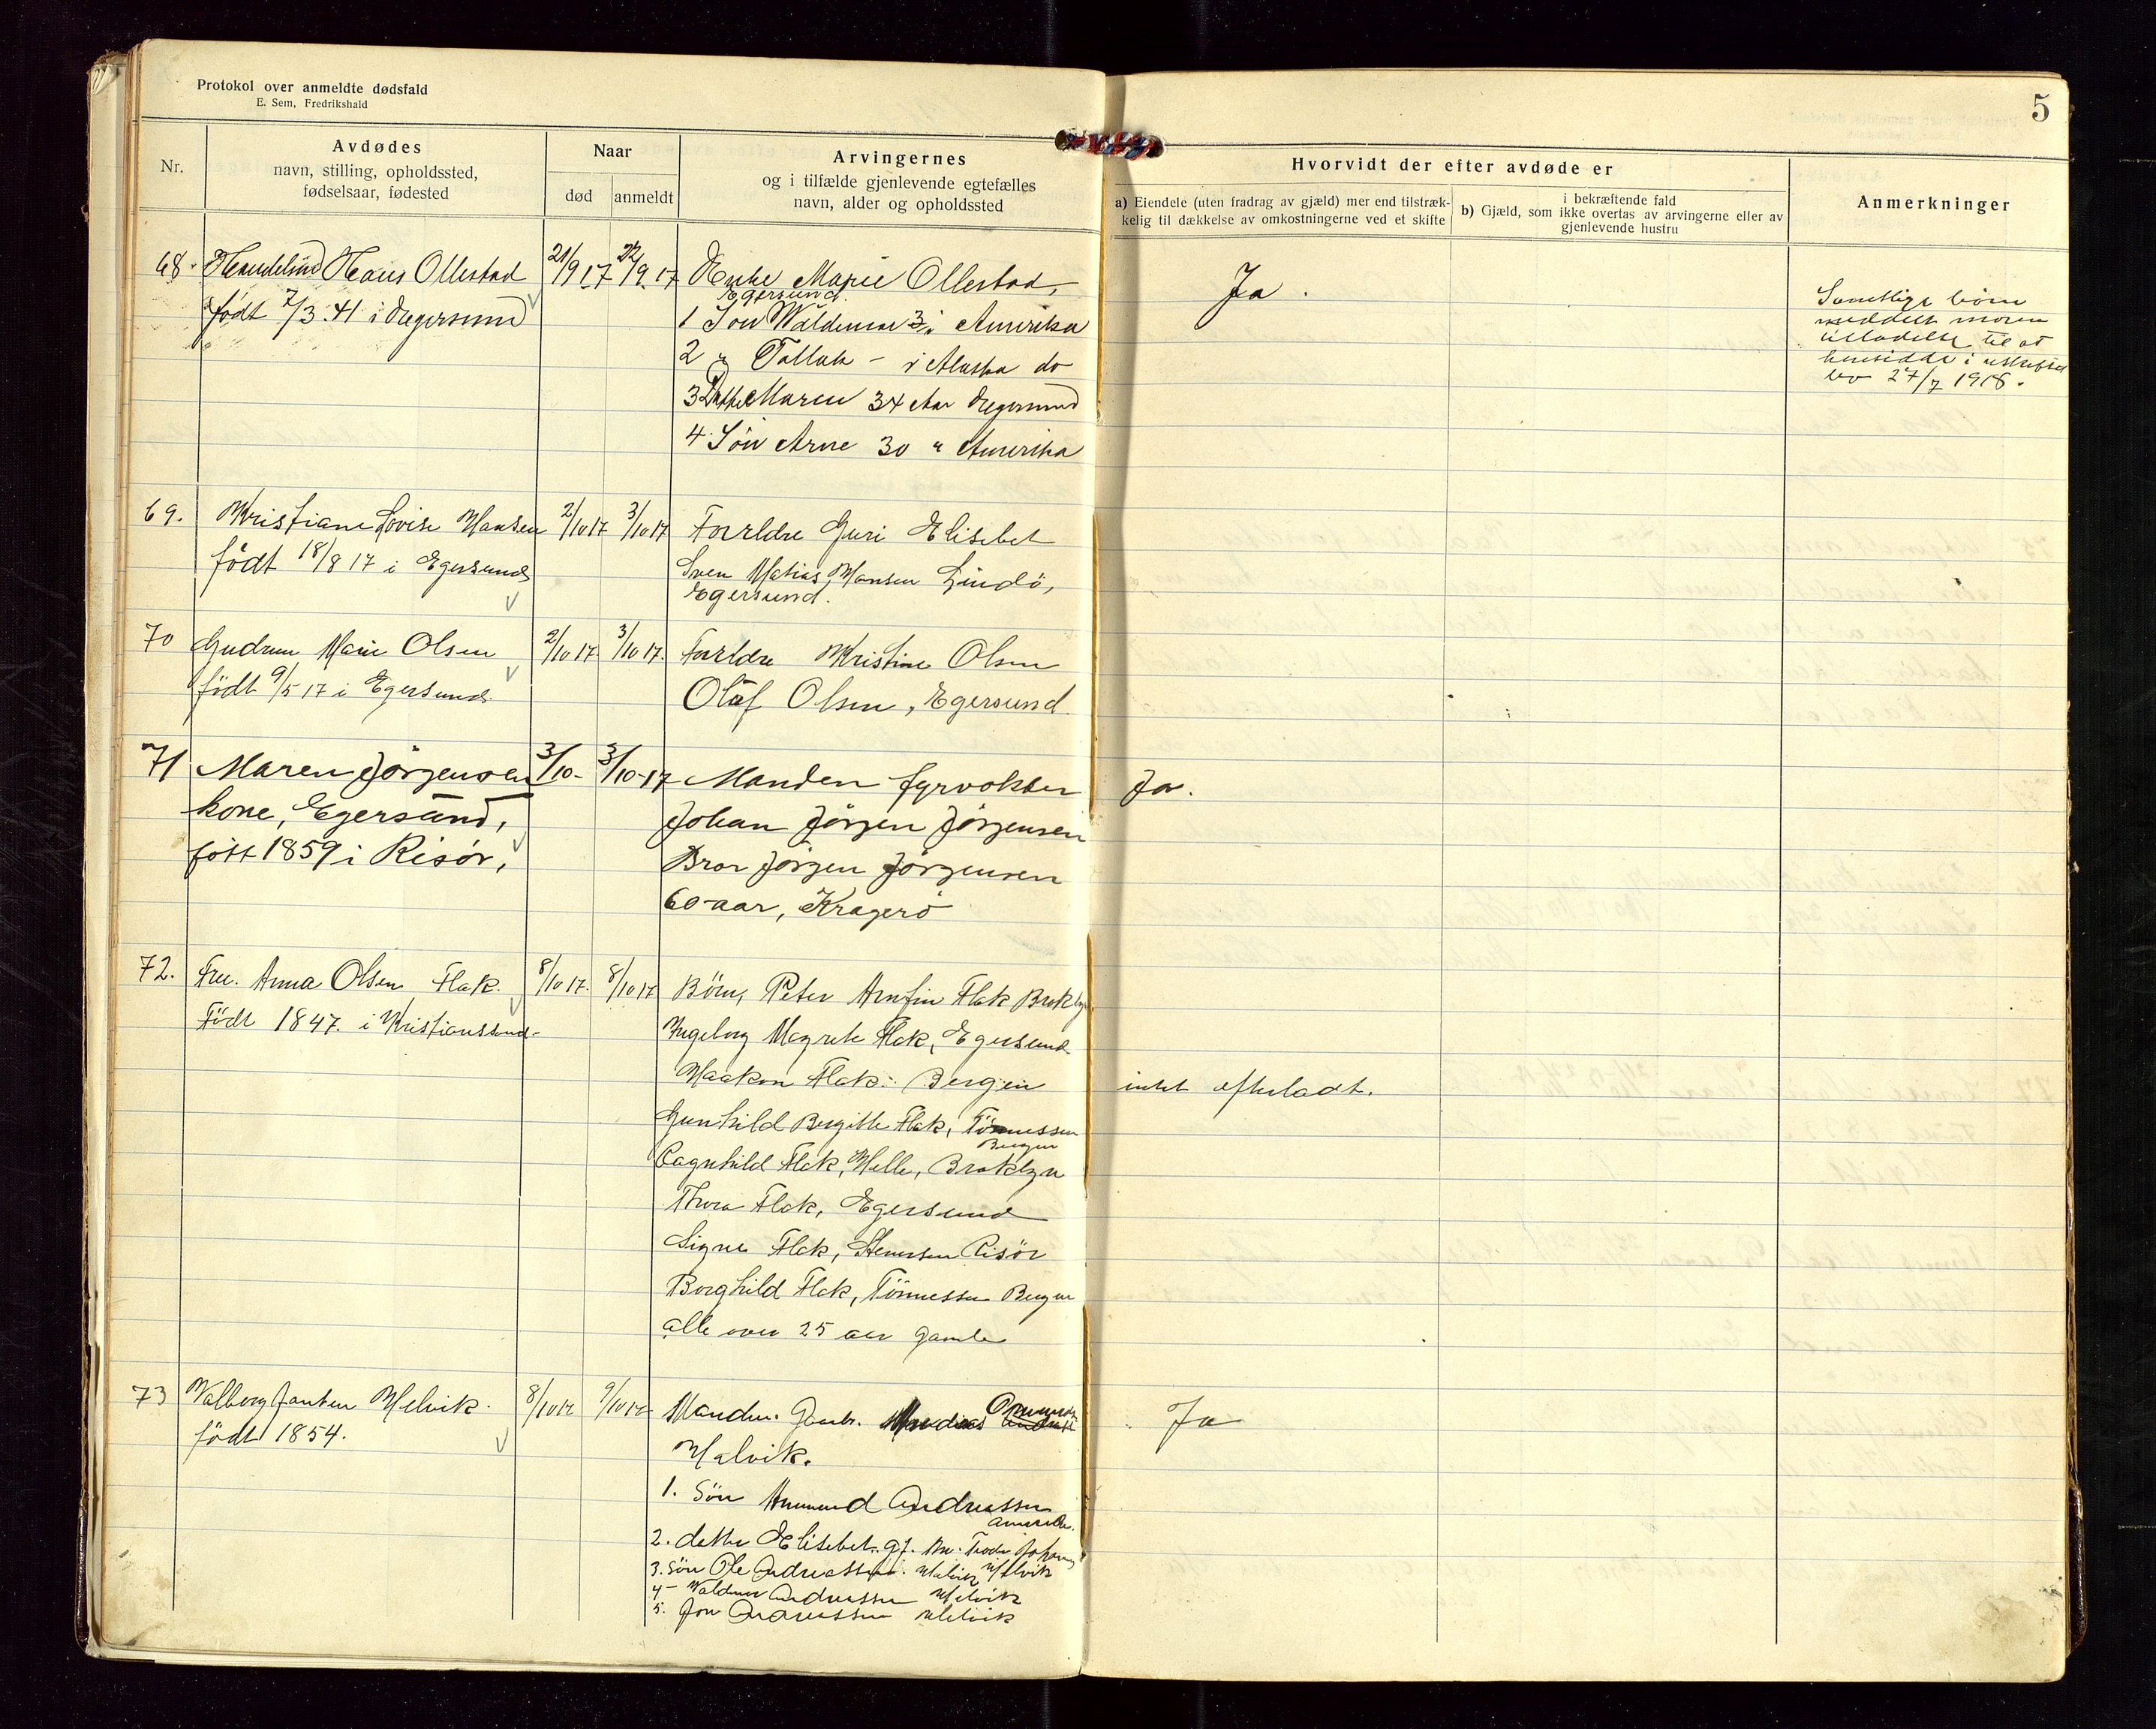 Protokol over anmeldte dødsfald
E. Sem, Fredrikshald
5
Nr.
Avdødes
navn, stilling, opholdssted,
fødselsaar, fødested
Naar
død
anmeldt
Arvingernes
og i tilfælde gjenlevende egtefælles
navn, alder og opholdssted
Hvorvidt der efter avdøde er
a) Eiendele (uten fradrag av gjæld) mer end tilstræk-
kelig til dækkelse av omkostningerne ved et skifte
i bekræftende fald
b) Gjæld, som ikke overtas av arvingerne eller av
gjenlevende hustru
Anmerkninger
68. Hans Ollestad 21/9 17 22/9 17 Enke Marie Ollestad, Ja.
Egersund.
født 7/3 41 i Egersund
1 Søn Waldemar i Amerika
2 " Tallak - i Alaska do
3 Datter Maren 34 Aar Egersund
4 Søn Arne 30 " Amerika
Samtlige børn
meddelt moren
tilladelse til at
hensidde i uskiftet
bo 27/7 1918.
69. Kristiane Lovise Hansen 2/10 17 3/10 17 Forældre Guri Elisebet
født 18/8 17 i Egersund
Sven Matias Hansen Lindö,
Egersund.
70 Gudrun Marie Olsen 2/10 17 3/10 17. Forældre Kristine Olsen
født 9/5 17 i Egersund.
Olaf Olsen, Egersund
71 Maren Jörgensen 3/10- 3/10-17 Manden fyrvokter Ja.
kone, Egersund,
Johan Jörgen Jörgensen
født 1859 i Risör,
Bror Jörgen Jörgensen
60 aar, Kragerö
72. Fru. Anna Olsen Flak. 8/10 17. 8/10 17 Börn, Peter Arnfin Flak Broklyn
Födt 1847. i Kristianssund-
Ingeborg Magrete Flak, Egersund
Haakon Flak. Bergen
intet efterladt.
Gunhild Bergitte Flak, Tönnessen
Bergen
Ragnhild Flak, Helle, Broklyn
Thora Flak, Egersund
Signe Flak, Risör
Borghild Flak, Tönnessen Bergen
alle over 25 aar gamle
73 Valborg Melvik. 8/10 17 9/10 17 Manden.
Ja
født 1854.
Melvik.
1. Sön Ammund Andreassen
Amerika.
2. datter Elisebet. gf. m.
3. Sön Ole Andreassen. Melvik
4 - Waldemar Andreassen Melvik
5. Jon Andreassen Melvik